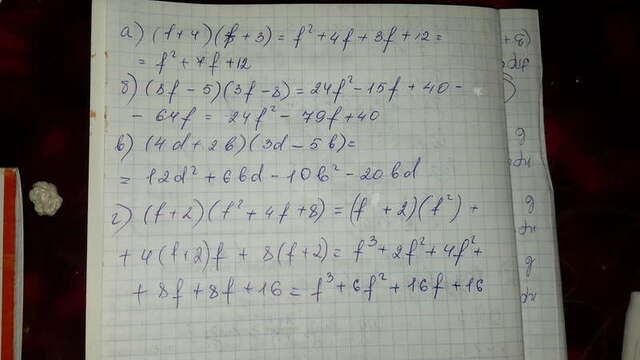 а) (f+4)(f+3) = f²+4f+3f+12=
= f²+7f+12
б) (8f-5)(3f-8)=24f²-15f+40-
- 64f = 24f²-79f+40
в) (4d+2b)(3d-5b)=
= 12d²+6bd-10b²-20bd
г) (f+2)(f²+4f+8)=(f+2)(f²)+
+4(f+2)f+8(f+2)=f³+2f²+4f²+
+8f+8f+16=f³+6f²+16f+16